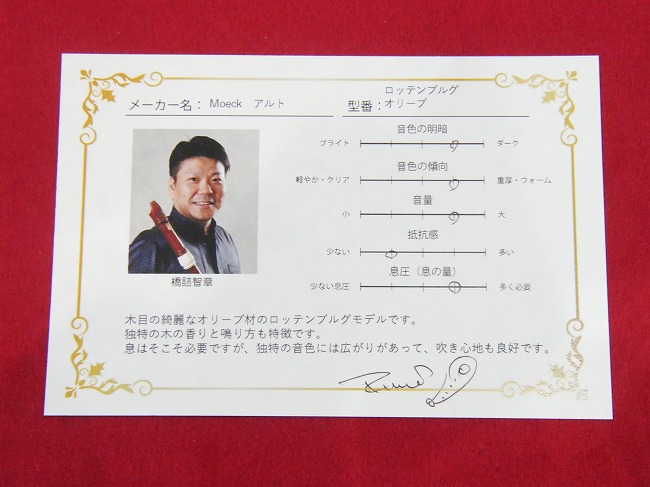 メーカー名： Moeck　アルト
型番：ロッテンブルグ
オリーブ
音色の明暗
ブライト
ダーク
音色の傾向
軽やか・クリア
重厚・ウォーム
音量
小
大
抵抗感
少ない
多い
息圧（息の量）
少ない息圧
多く必要
橋詰智章
木目の綺麗なオリーブ材のロッテンブルグモデルです。
独特の木の香りと鳴り方も特徴です。
息はそこそこ必要ですが、独特の音色には広がりがあって、吹き心地も良好です。